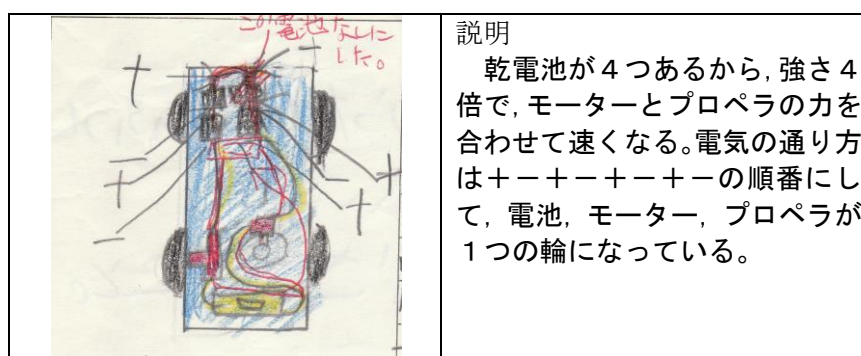 この電池なしに
した。
+
−
−
+
−
+
+
説明
　乾電池が４つあるから，強さ４
倍で，モーターとプロペラの力を
合わせて速くなる。電気の通り方
は＋－＋－＋－＋－の順番にし
て，電池，モーター，プロペラが
１つの輪になっている。